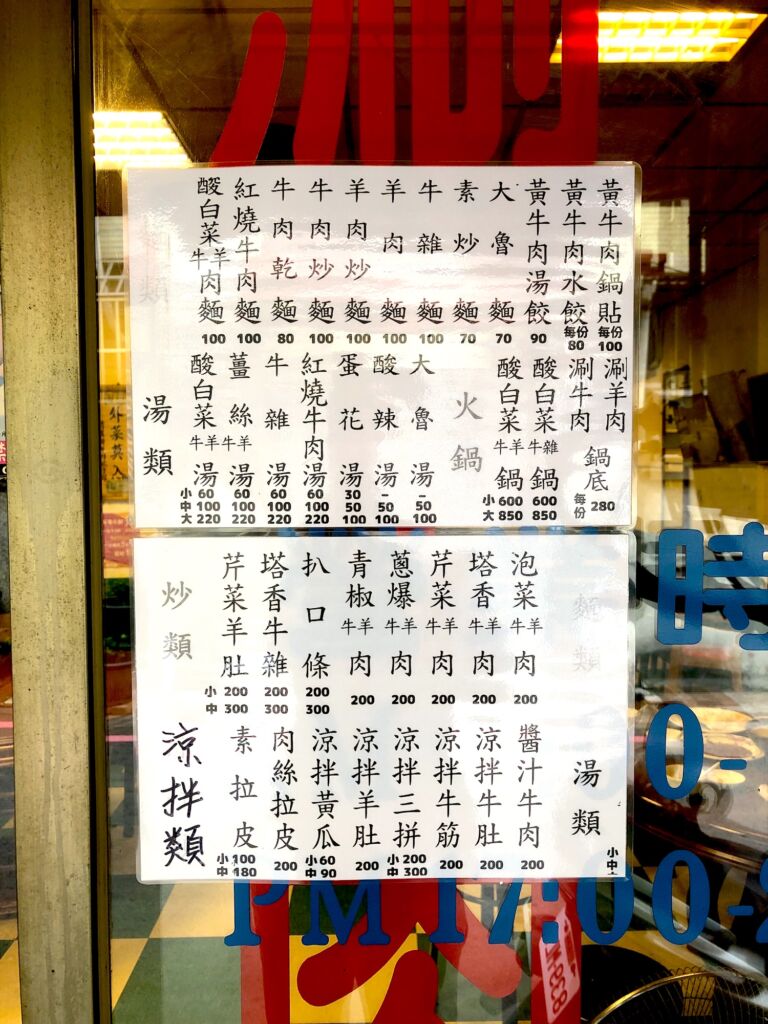 麵類
酸白菜牛羊肉麵 100
紅燒牛肉麵 100
牛肉乾麵 80
牛肉炒麵 100
羊肉炒麵 100
羊肉麵 100
牛雜麵 100
素炒麵 70
大魯麵 70
黃牛肉湯餃 90
黃牛肉水餃 每份 80
黃牛肉鍋貼 每份 100
湯類
小 中 大
酸白菜牛羊湯 60 100 220
薑絲牛羊湯 60 100 220
牛雜湯 60 100 220
紅燒牛肉湯 60 100 220
蛋花湯 30 50 100
酸辣湯 - 50 100
大魯湯 - 50 100
火鍋
小 大
酸白菜牛羊鍋 600 850
酸白菜牛雜鍋 600 850
涮牛肉
涮羊肉
鍋底 每份 280
炒類
小 中
芹菜羊肚 200 300
塔香牛雜 200 300
扒口條 200 300
青椒牛羊肉 200
蔥爆牛羊肉 200
芹菜牛羊肉 200
塔香牛羊肉 200
泡菜牛羊肉 200
麵類
涼拌類
素拉皮 小100 中180
肉絲拉皮 200
涼拌黃瓜 小60 中90
涼拌羊肚 200
涼拌三拼 小200 中300
涼拌牛筋 200
涼拌牛肚 200
醬汁牛肉 200
湯類
小 中
外菜莫入
時
0-
PM 17:00-